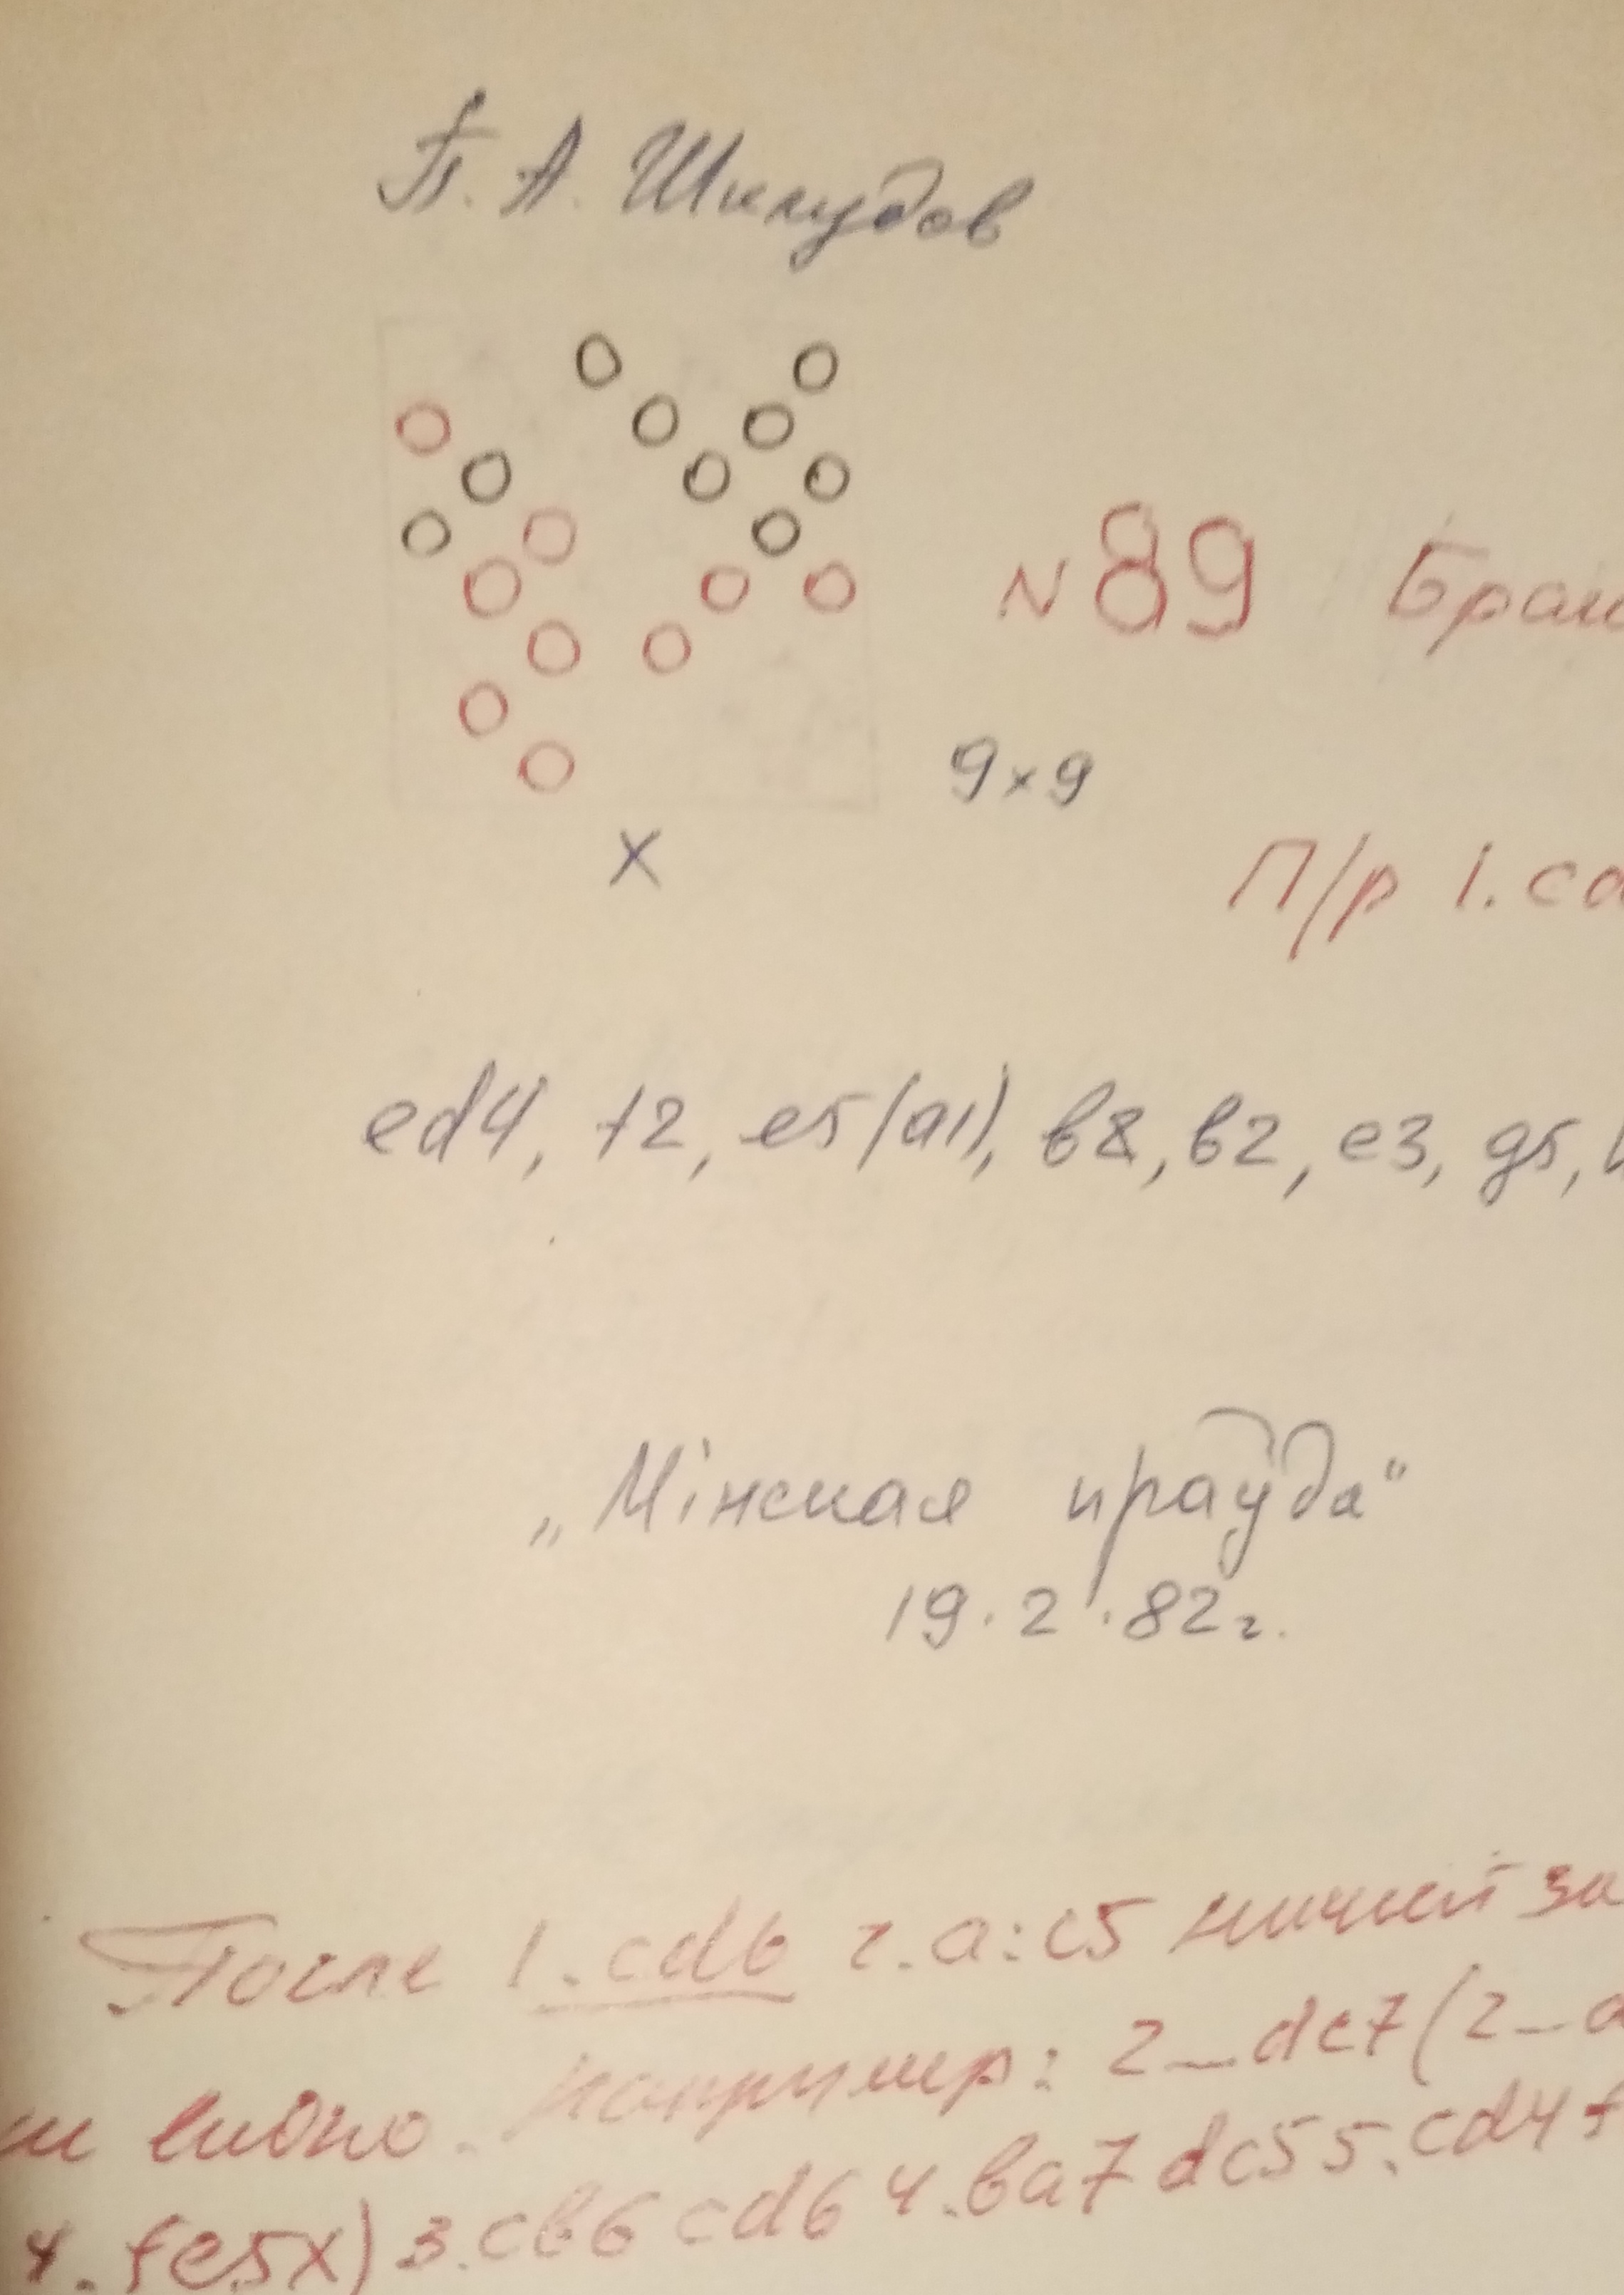 П. А. Шклудов
N 89
9 x 9
X
П/р 1. cd
ed4, f2, e5 (a1), в8, в2, e3, g5,
„Мінская праўда“
19. 2. 82 г.
После 1. cd6 2. a:c5 ничьей
видно. Например: 2_dc7 (2_
4. fe5x) 3. cв6 cd6 4. вa7 dc5 5. cd4 f